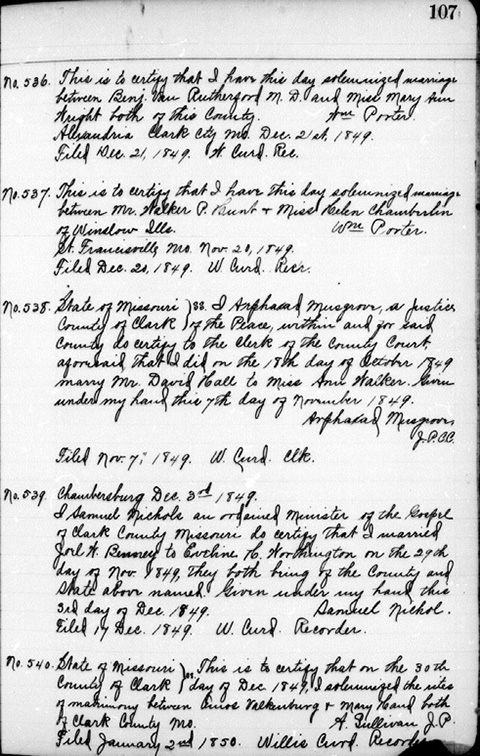 107
No. 536. This is to certify that I have this day solemnized marriage
between Benj. Van Rutherford M. D. and Miss Mary Ann
Wright both of this County. Wm Porter.
Alexandria Clark City Mo. Dec. 21st, 1849.
Filed Dec. 21, 1849. W. Curd. Rec.
No. 537. This is to certify that I have this day solemnized marriage
between Mr. Walker P. Bunt + Miss Helen Chamberlin
of Winslow Ills. Wm Porter.
St. Francisville, Mo. Nov. 20, 1849.
Filed Dec. 20, 1849. W. Curd. Recr.
No. 538. State of Missouri } SS. I Arphaxad Musgrove, a Justice
County of Clark } of the Peace, within and for said
County do certify to the Clerk of the County Court
aforesaid that I did on the 18th day of October 1849
marry Mr. David Hall to Miss Ann Walker. Given
under my hand this 7th day of November 1849.
Arphaxad Musgrove
J.P.C.C.
Filed Nov. 7, 1849. W. Curd. Clk.
No. 539. Chambersburg Dec. 3rd 1849.
I Samuel Nichols an ordained Minister of the Gospel
of Clark County Missouri do certify that I married
Joel W. to Eveline H. Worthington on the 29th
day of Nov. 1849, they both being of the County and
State above named. Given under my hand this
3rd day of Dec. 1849. Samuel Nichol.
Filed 17 Dec. 1849. W. Curd. Recorder.
No. 540. State of Missouri } This is to certify that on the 30th
County of Clark } day of Dec 1849, I solemnized the rites
of matrimony between Enos Valkenburg + Mary Hand both
of Clark County Mo. A. Sullivan J.P.
Filed January 2nd 1850. Willis Curd. Recorder